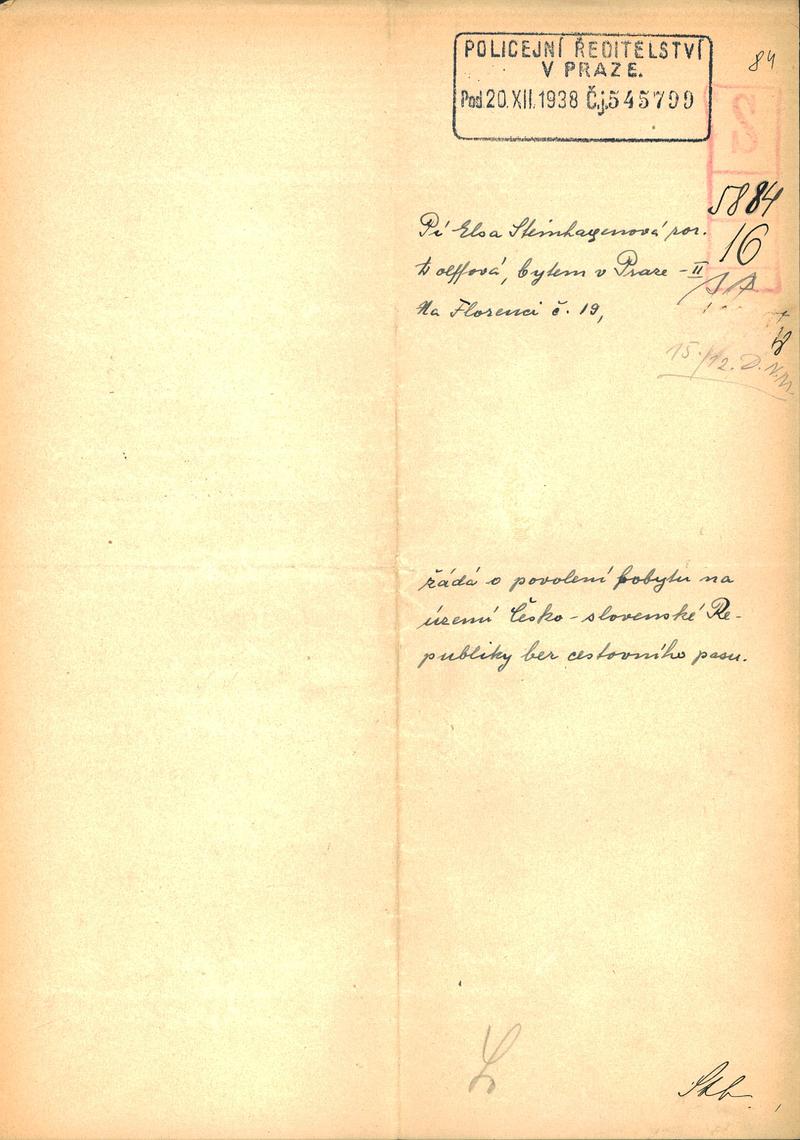 84
POLICEJNÍ ŘEDITELSTVÍ
V PRAZE.
Pod 20.XII.1938 Č.j. 545799
5884
16
Pí Elsa Steinhagenová roz.
Wolffová, bytem v Praze - II
Na Florenci č. 19,
15./12.
žádá o povolení pobytu na
území Česko - slovenské Re-
publiky bez cestovního pasu.
Stb.